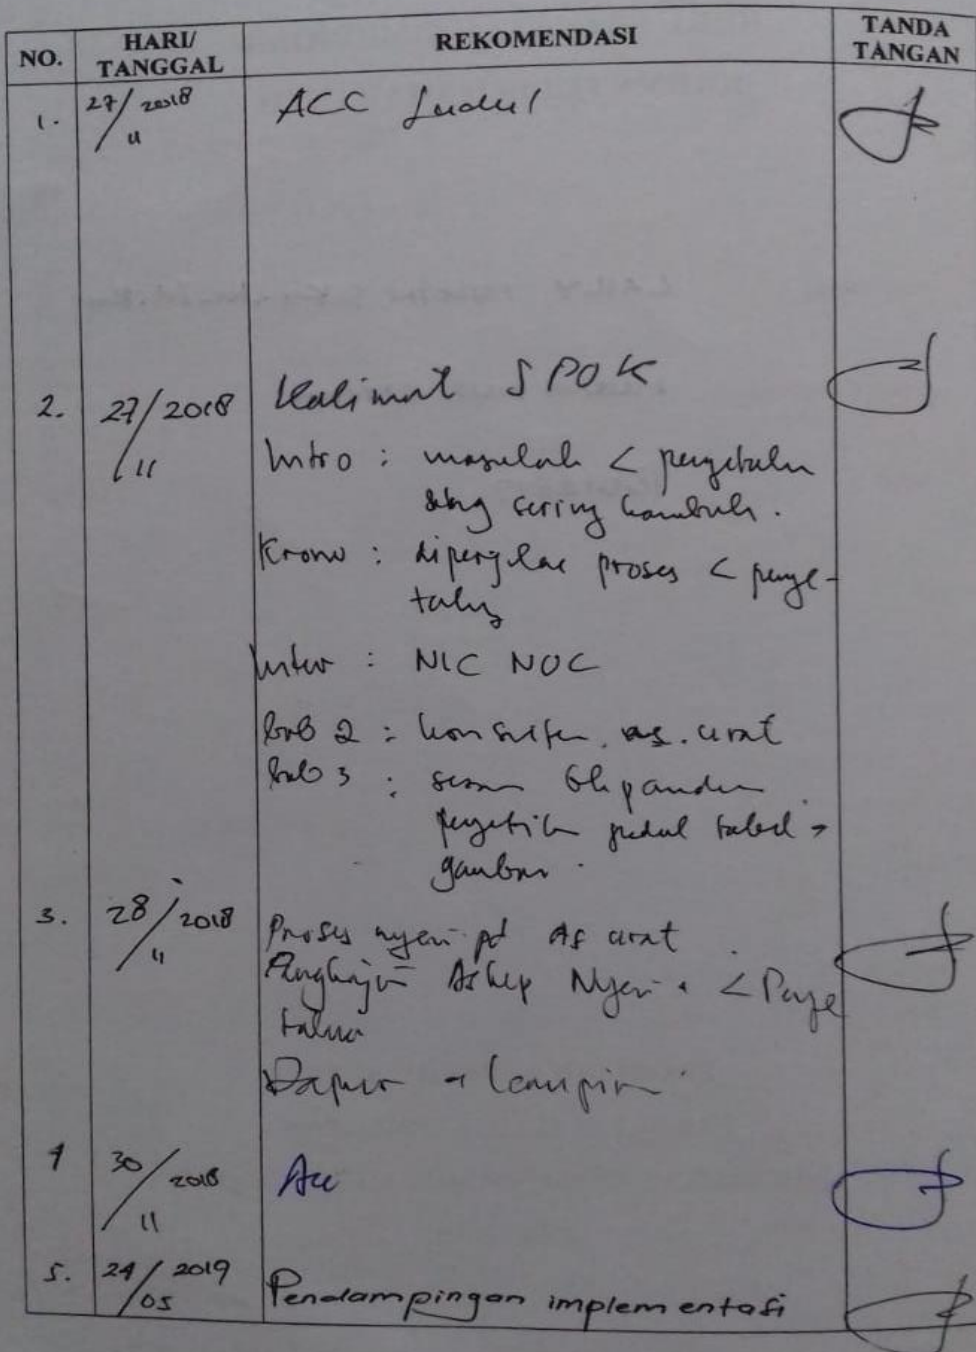 NO. HARI/ TANGGAL REKOMENDASI TANDA TANGAN
1. 27/11 2018 ACC Judul
2. 27/11 2018 Kalimat SPOK
Intro : masalah < pengetahu
yang sering kambuh.
Krono : diperjelas proses < penge-
tahu
Inter : NIC NOC
bab 2 : konsulten. as. urat
bab 3 : sesuai bk panduan
pengetikan judul tabel →
gambar.
3. 28/11 2018 Proses nyeri pd As urat
Pengkajian Askep Nyeri + < Penge
tahuan
Dapus → lampiran
4 30/11 2018 Acc
5. 24/05 2019 Pendampingan implementasi